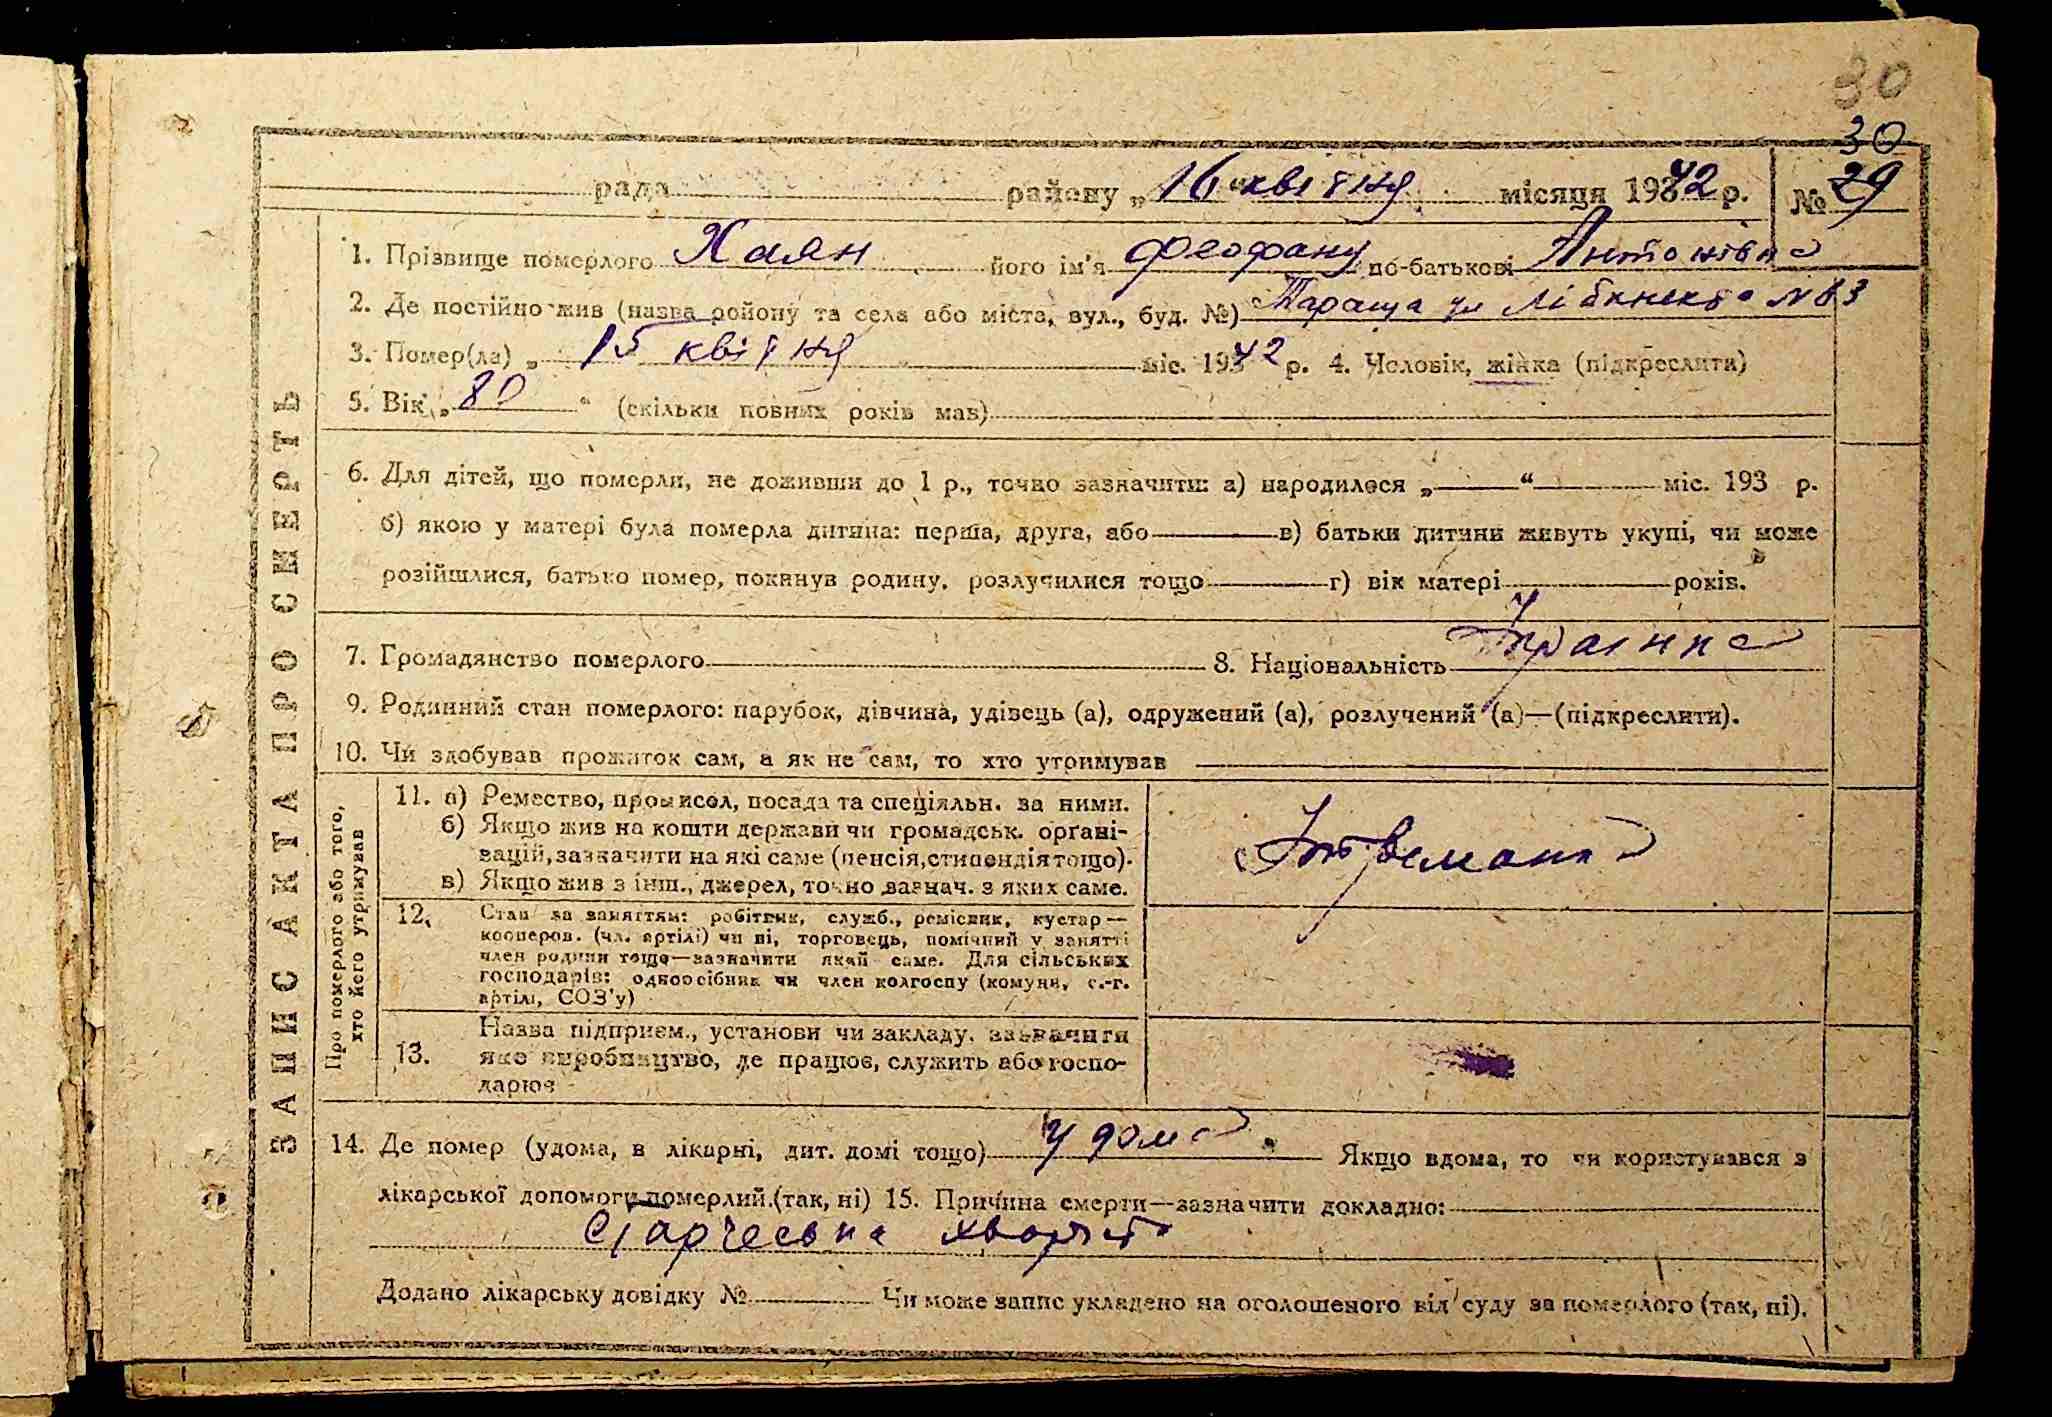 30
30
рада району „16“ квітня місяця 1942 р. № 29
1. Прізвище померлого Хаян його ім'я Феофану по-батькові Антонівна
2. Де постійно жив (назва району та села або міста, вул., буд. №) Тараща ул Лібкнехта № 63
3. Помер(ла) „15 квітня міс. 1942 р. 4. Чоловік, жінка (підкреслити)
5. Вік „80“ (скільки повних років мав)
6. Для дітей, що померли, не доживши до 1 р., точно зазначити: а) народилося „ “ міс. 193 р.
б) якою у матері була померла дитина: перша, друга, або в) батьки дитини живуть укупі, чи може
розійшлися, батько помер, покинув родину, розлучилися тощо г) вік матері років.
7. Громадянство померлого 8. Національність Україн
9. Родинний стан померлого: парубок, дівчина, удівець (а), одружений (а), розлучений (а)—(підкреслити).
10. Чи здобував прожиток сам, а як не сам, то хто утримував
ЗАПИС АКТА ПРО СМЕРТЬ
Про померлого або того, хто його утримував
11. а) Ремество, промисел, посада та спеціяльн. за ними.
б) Якщо жив на кошти держави чи громадськ. орґані-
зацій, зазначити на які саме (пенсія, стипендія тощо).
в) Якщо жив з інш., джерел, точно зазнач. з яких саме.
12. Стан за заняттям: робітник, служб., ремісник, кустар—
кооперов. (чл. артілі) чи ні, торговець, помічний у занятті
член родини тощо—зазначити який саме. Для сільських
господарів: одноосібник чи член колгоспу (комуни, с.-г.
артілі, СОЗ'у)
13. Назва підприєм., установи чи закладу, зазначити
яке виробництво, де працює, служить або госпо-
дарює
14. Де помер (удома, в лікарні, дит. домі тощо) у дома. Якщо вдома, то чи користувався з
лікарської допомоги померлий (так, ні) 15. Причина смерти—зазначити докладно:
Старчесьна хворіст
Додано лікарську довідку № Чи може запис укладено на оголошеного від суду за померлого (так, ні).